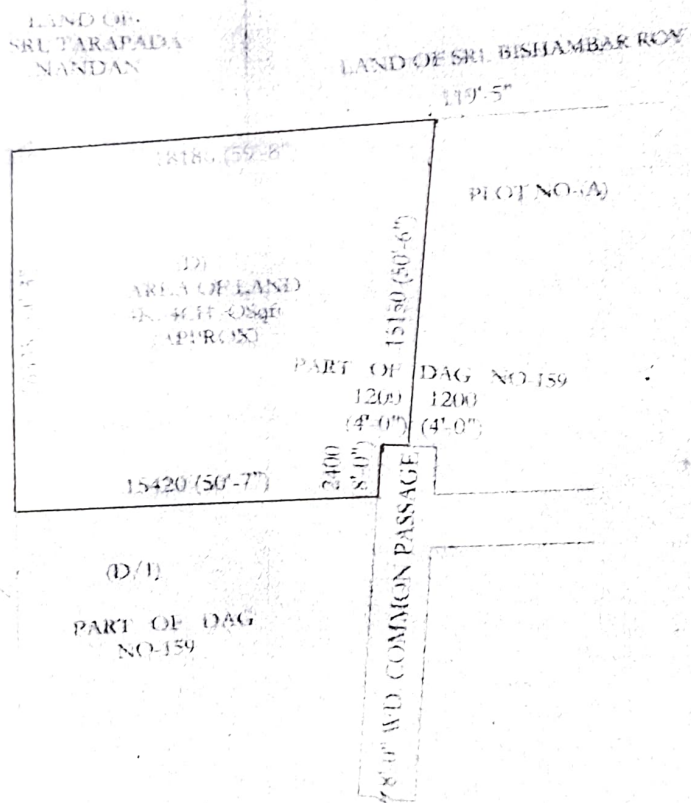 LAND OF
SRI. TARAPADA
NANDAN
LAND OF SRI. BISHAMBAR ROY
119'-5"
(59'-8"
PLOT NO-(A)
(D)
AREA OF LAND
(APPROX)
15150 (50'-6")
PART OF DAG NO-159
1200 1200
(4'-0") (4'-0")
2400
8'-0")
15420 (50'-7")
(D/1)
PART OF DAG
NO-159
8'-0" WD. COMMON PASSAGE